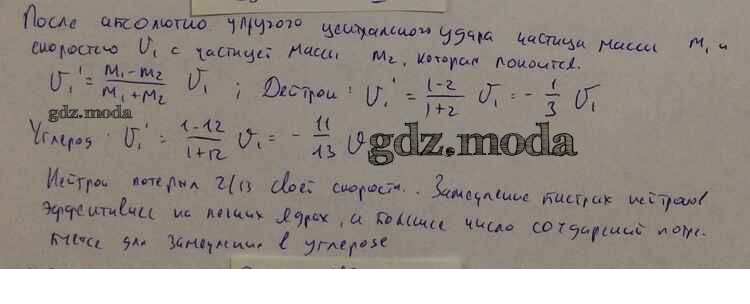 После абсолютно упругого центрального удара частица массы m₁ и
скоростью υ₁ с частицей массы m₂, которая покоится.
υ₁' = (m₁-m₂)/(m₁+m₂) υ₁ ; Дейтрон: υ₁' = (1-2)/(1+2) υ₁ = - 1/3 υ₁
gdz.moda
Углерод: υ₁' = (1-12)/(1+12) υ₁ = - 11/13 υ
gdz.moda
Нейтрон потерял 2/13 своей скорости. Замедление быстрых нейтронов
эффективнее на легких ядрах, а большее число соударений потре-
буется для замедления в углероде